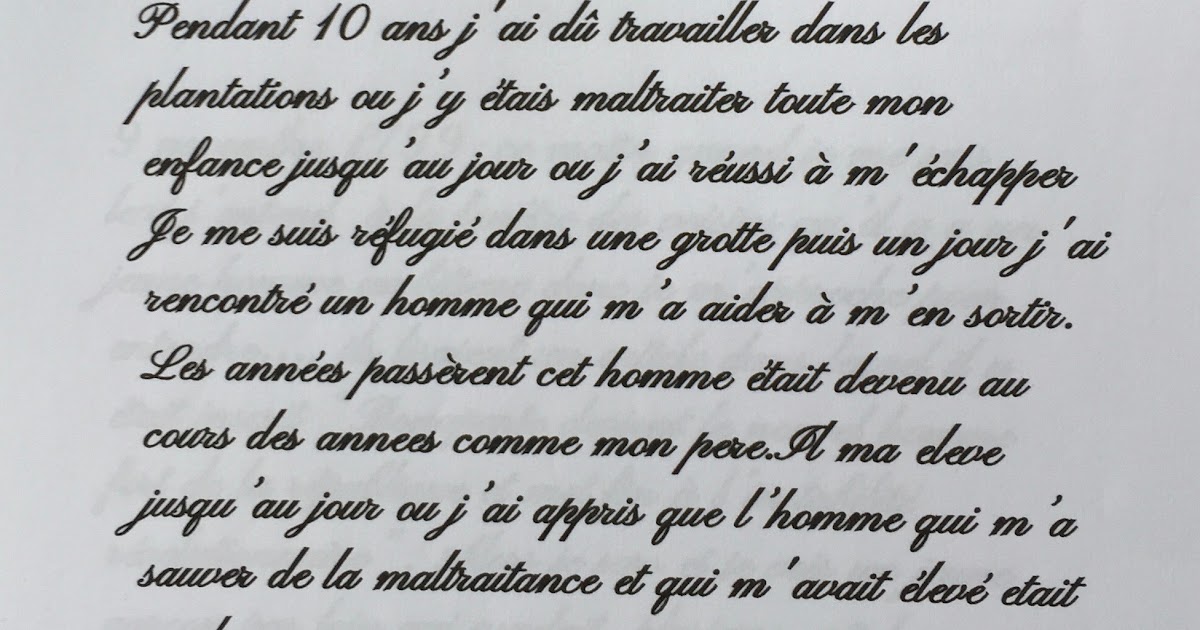 Pendant 10 ans j'ai dû travailler dans les
plantations ou j'y étais maltraiter toute mon
enfance jusqu'au jour ou j'ai réussi à m'échapper
Je me suis réfugié dans une grotte puis un jour j'ai
rencontré un homme qui m'a aider à m'en sortir.
Les années passèrent cet homme était devenu au
cours des annees comme mon pere.Il ma eleve
jusqu'au jour ou j'ai appris que l'homme qui m'a
sauver de la maltraitance et qui m'avait élevé etait